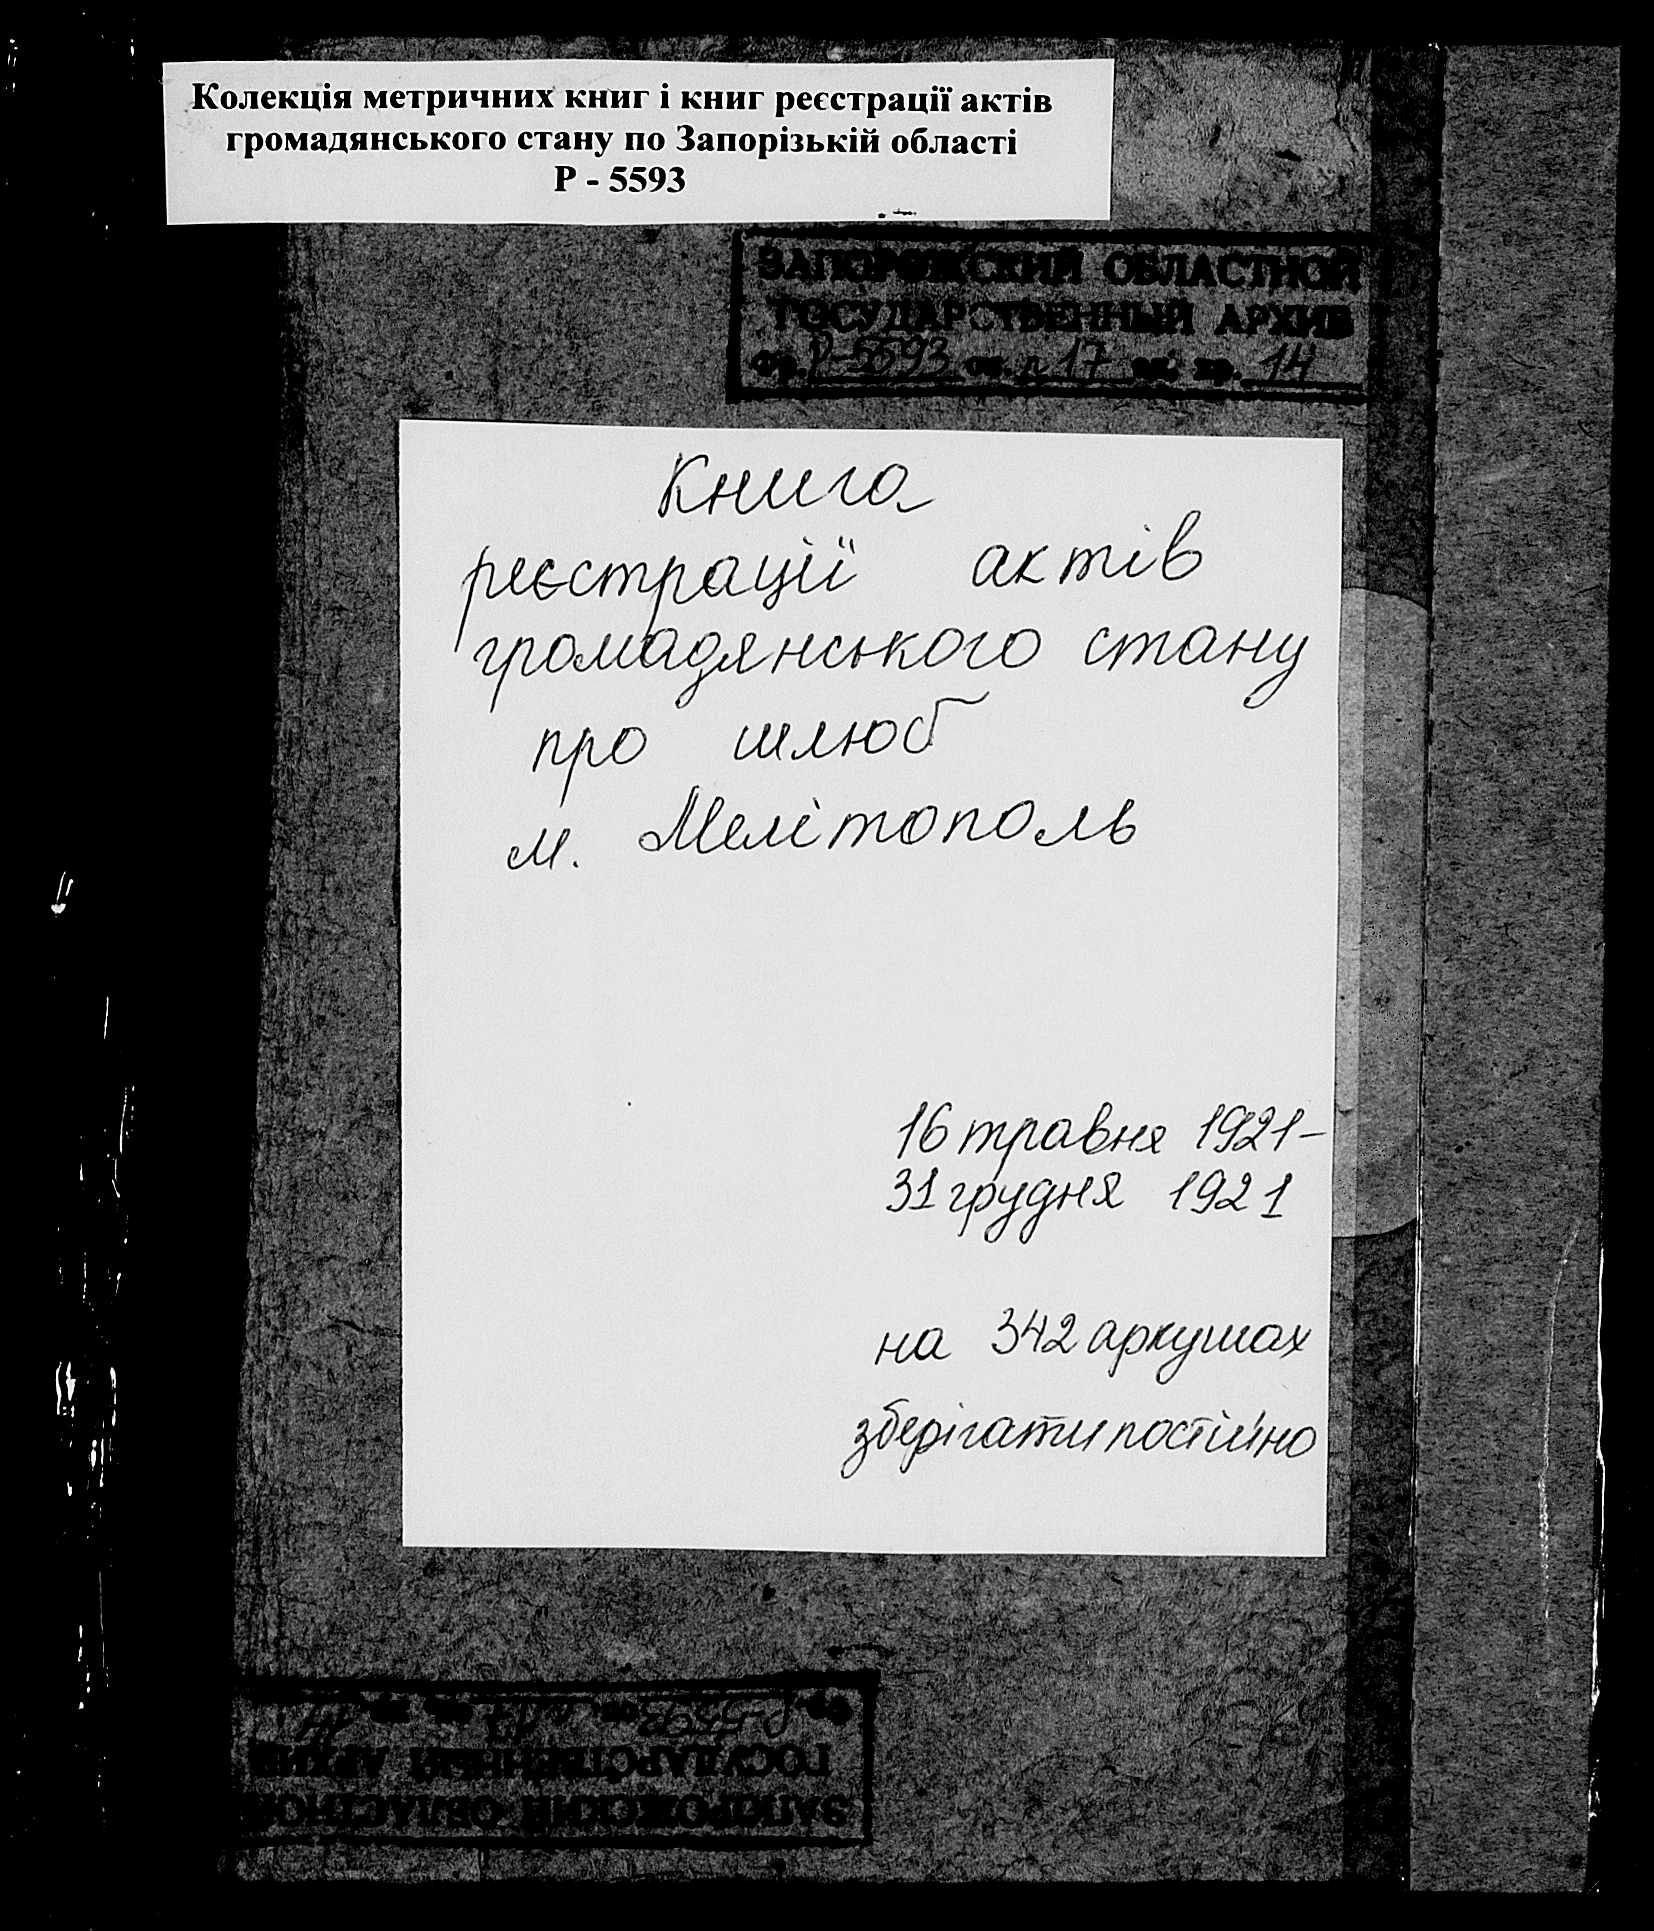 Колекція метричних книг і книг реєстрації актів
громадянського стану по Запорізькій області
Р - 5593
ЗАПОРОЖСКИЙ ОБЛАСТНОЙ
ГОСУДАРСТВЕННЫЙ АРХИВ
Фр. Р-5593 оп. п 17 ед. хр. 14
Книга
реєстрації актів
громадянського стану
про шлюб
м. Мелітополь
16 травня 1921-
31 грудня 1921
на 342 аркушах
зберігати постійно
ЗАПОРОЖСКИЙ ОБЛАСТНО
ГОСУДАРСТВЕННЫЙ АРХИВ